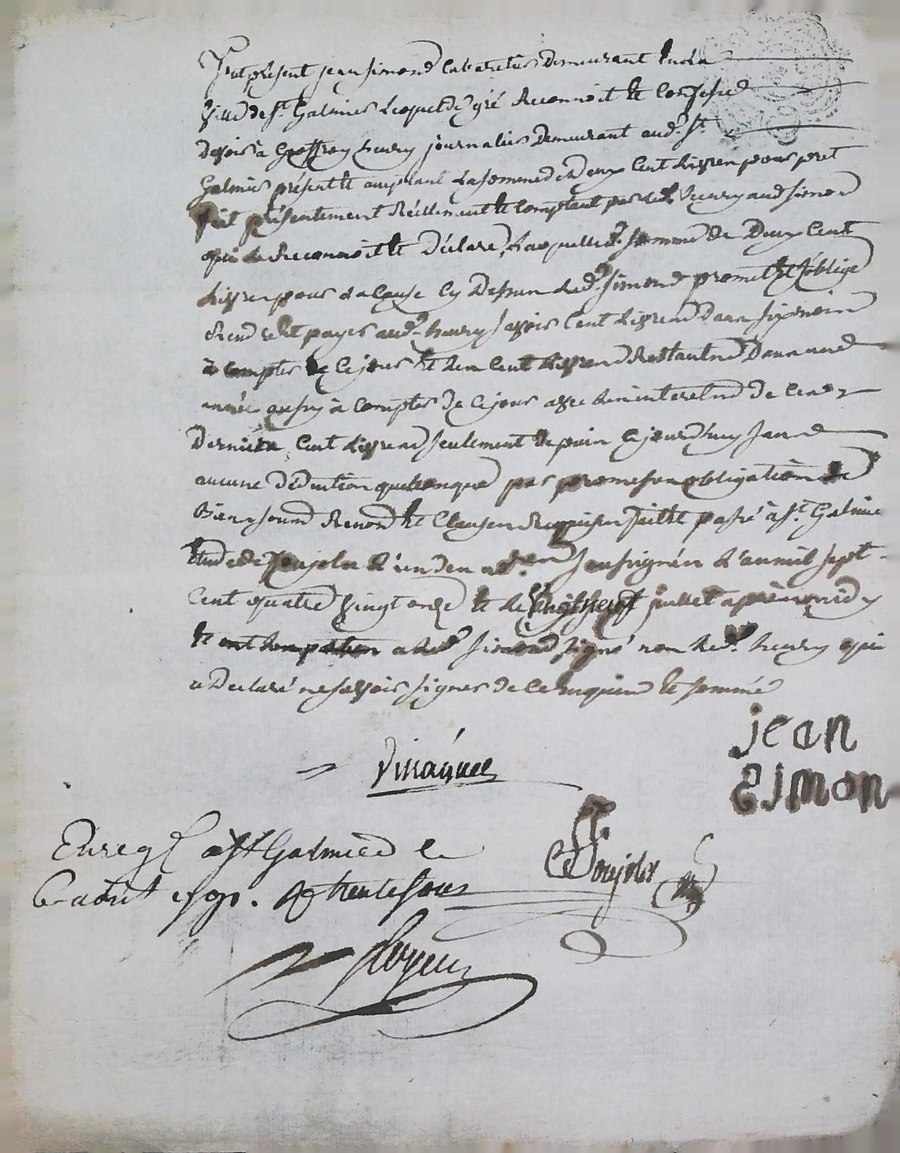 Fut présent jean Simond Cabaretier demeurant en la
Ville de St. Galmier Lequel de gré Reconnoit et Confesse
devoir à Geoffroy heury journalier demeurant aud. St.
Galmier présent et acceptant La somme de deux Cent Livres pour pret
fait présentement Réellement et Comptant par led. heury aud Simon
qui le Reconnoit et Déclare, Laquelle d. somme de Deux Cent
Livres pour La Cause Cy Dessus Led. Simond promet et s'oblige
rendre et payer aud. heury savoir Cent Livres dans six mois
à compter de Ce jour et les Cent Livres Restantes Dans une
année aussy à Compter de Ce jour avec les interets de Ces
Dernieres Cent Livres seulement depuis Ce jourd'huy sans
aucune déduction quelconque par promesse obligation de
Biens soumis Renon et Clauses Requises fait et passé à St. Galmier
étude de Soujolx L'un des no. soussignés L'an mil sept
Cent quatre vingt onze et le vingt neuf juillet après midy
et a led. Simond signé non led. heury qui
a Déclaré ne savoir signer de Ce enquis et sommé
jean
Simon
Enreg. à St Galmier le
6 aout 1791. R trente sous